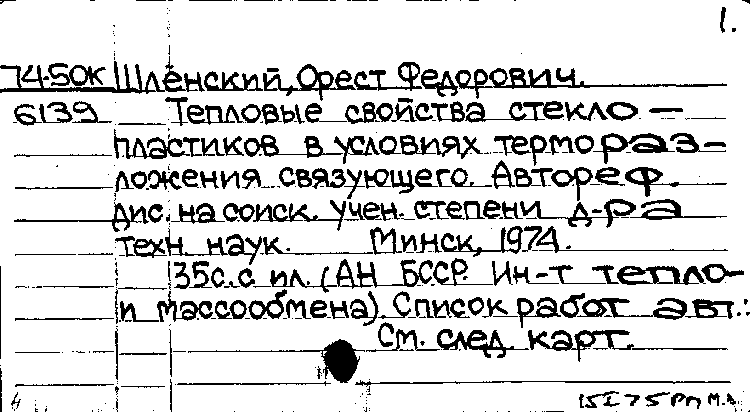 1.
74-50К Шлёнский, Орест Федорович.
6139 Тепловые свойства стекло-
пластиков в условиях терморраз-
ложения связующего. Автореф.
дис. на соиск. учен. степени д-ра
техн. наук. Минск, 1974.
35с.с ил. (АН БССР. Ин-т тепло-
и массообмена). Список работ авт.:
См. след. карт.